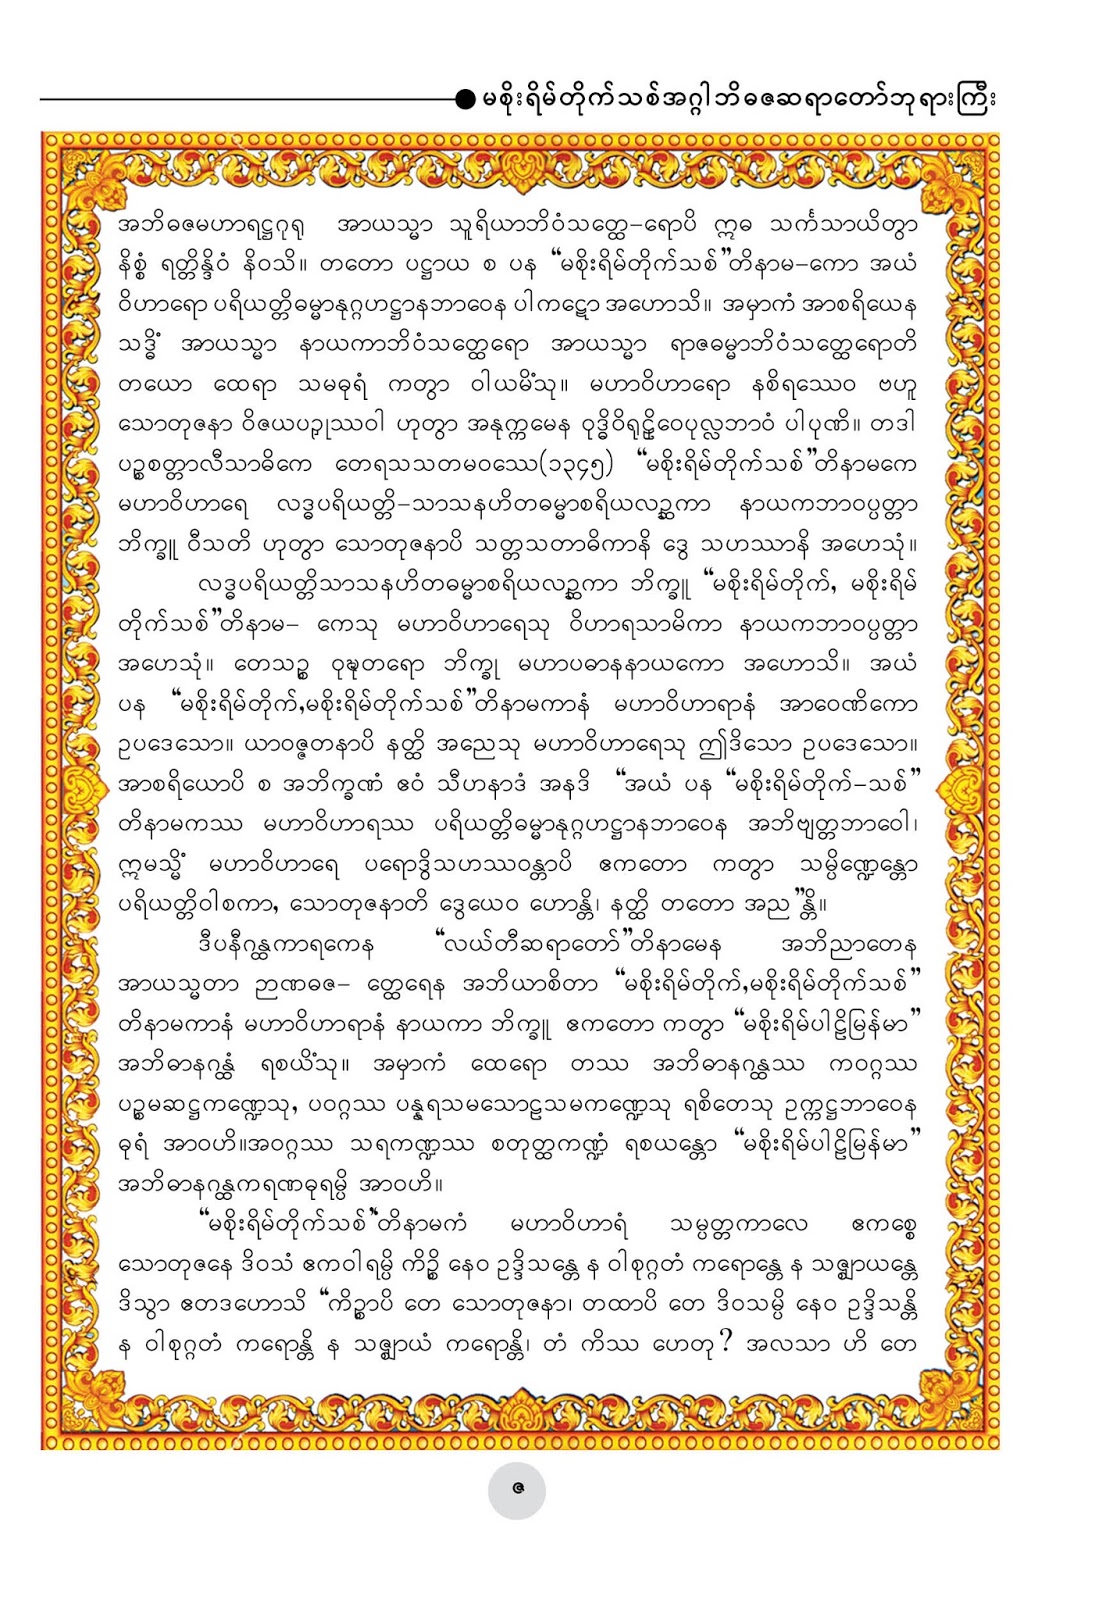 မစိုးရိမ်တိုက်သစ်အဂ္ဂါဘိဓဇဆရာတော်ဘုရားကြီး
အဘိဓဇမဟာရဋ္ဌဂုရု အာယသ္မာ သူရိယာဘိဝံသတ္ထေ–ရောပိ ဣဓ သင်္ကသာယိတွာ
နိစ္စံ ရတ္တိန္ဒိဝံ နိဝသိ။ တတော ပဋ္ဌာယ စ ပန “မစိုးရိမ်တိုက်သစ်”တိနာမ–ကော အယံ
ဝိဟာရော ပရိယတ္တိဓမ္မာနုဂ္ဂဟဋ္ဌာနဘာဝေန ပါကဋော အဟောသိ။ အမှာကံ အာစရိယေန
သဒ္ဓိံ အာယသ္မာ နာယကာဘိဝံသတ္ထေရော အာယသ္မာ ရာဇဓမ္မာဘိဝံသတ္ထေရောတိ
တယော ထေရာ သမဓုရံ ကတွာ ဝါယမိံသု။ မဟာဝိဟာရော နစိရဿေဝ ဗဟူ
သောတုဇနာ ဝိဇယပဉုဿဝါ ဟုတွာ အနုက္ကမေန ဝုဒ္ဓိဝိရုဠှိဝေပုလ္လဘာဝံ ပါပုဏိ။ တဒါ
ပဉ္စစတ္တာလီသာဓိကေ တေရသသတမဝဿေ(၁၃၄၅) “မစိုးရိမ်တိုက်သစ်”တိနာမကေ
မဟာဝိဟာရေ လဒ္ဓပရိယတ္တိ–သာသနဟိတဓမ္မာစရိယလဉ္ဆကာ နာယကဘာဝပ္ပတ္တာ
ဘိက္ခူ ဝီသတိ ဟုတွာ သောတုဇနာပိ သတ္တသတာဓိကာနိ ဒွေ သဟဿာနိ အဟေသုံ။
လဒ္ဓပရိယတ္တိသာသနဟိတဓမ္မာစရိယလဉ္ဆကာ ဘိက္ခူ “မစိုးရိမ်တိုက်, မစိုးရိမ်
တိုက်သစ်”တိနာမ– ကေသု မဟာဝိဟာရေသု ဝိဟာရသာမိကာ နာယကဘာဝပ္ပတ္တာ
အဟေသုံ။ တေသဉ္စ ဝုဍ္ဎတရော ဘိက္ခု မဟာပဓာနနာယကော အဟောသိ။ အယံ
ပန “မစိုးရိမ်တိုက်,မစိုးရိမ်တိုက်သစ်”တိနာမကာနံ မဟာဝိဟာရာနံ အာဝေဏိကော
ဥပဒေသော။ ယာဝဇ္ဇတနာပိ နတ္ထိ အညေသု မဟာဝိဟာရေသု ဤဒိသော ဥပဒေသော။
အာစရိယောပိ စ အဘိက္ခဏံ ဧဝံ သီဟနာဒံ အနဒိ “အယံ ပန “မစိုးရိမ်တိုက်–သစ်”
တိနာမကဿ မဟာဝိဟာရဿ ပရိယတ္တိဓမ္မာနုဂ္ဂဟဋ္ဌာနဘာဝေန အဘိဗျတ္တဘာဝေါ၊
ဣမသ္မိံ မဟာဝိဟာရေ ပရောဒွိသဟဿဝန္တာပိ ဧကတော ကတွာ သမ္ပိဏ္ဍေန္တော
ပရိယတ္တိဝါစကာ, သောတုဇနာတိ ဒွေယေဝ ဟောန္တိ၊ နတ္ထိ တတော အည”န္တိ။
ဒီပနီဂန္ထကာရကေန “လယ်တီဆရာတော်”တိနာမေန အဘိညာတေန
အာယသ္မတာ ဉာဏဓဇ– တ္ထေရေန အဘိယာစိတာ “မစိုးရိမ်တိုက်,မစိုးရိမ်တိုက်သစ်”
တိနာမကာနံ မဟာဝိဟာရာနံ နာယကာ ဘိက္ခူ ဧကတော ကတွာ “မစိုးရိမ်ပါဠိမြန်မာ”
အဘိဓာနဂန္ထံ ရစယိံသု။ အမှာကံ ထေရော တဿ အဘိဓာနဂန္ထဿ ကဝဂ္ဂဿ
ပဉ္စမဆဋ္ဌကဏ္ဍေသု, ပဝဂ္ဂဿ ပန္နရသမသောဠသမကဏ္ဍေသု ရစိတေသု ဥက္ကဋ္ဌဘာဝေန
ဓုရံ အာဝဟိ။အဝဂ္ဂဿ သရကဏ္ဍဿ စတုတ္ထကဏ္ဍံ ရစယန္တော “မစိုးရိမ်ပါဠိမြန်မာ”
အဘိဓာနဂန္ထကရဏဓုရမ္ပိ အာဝဟိ။
“မစိုးရိမ်တိုက်သစ်”တိနာမကံ မဟာဝိဟာရံ သမ္ပတ္တကာလေ ဧကစ္စေ
သောတုဇနေ ဒိဝသံ ဧကဝါရမ္ပိ ကိဉ္စိ နေဝ ဥဒ္ဒိသန္တေ န ဝါစုဂ္ဂတံ ကရောန္တေ န သဇ္ဈာယန္တေ
ဒိသွာ ဧတဒဟောသိ “ကိဉ္စာပိ တေ သောတုဇနာ၊ တထာပိ တေ ဒိဝသမ္ပိ နေဝ ဥဒ္ဒိသန္တိ
န ဝါစုဂ္ဂတံ ကရောန္တိ န သဇ္ဈာယံ ကရောန္တိ၊ တံ ကိဿ ဟေတု? အလသာ ဟိ တေ
ဇ